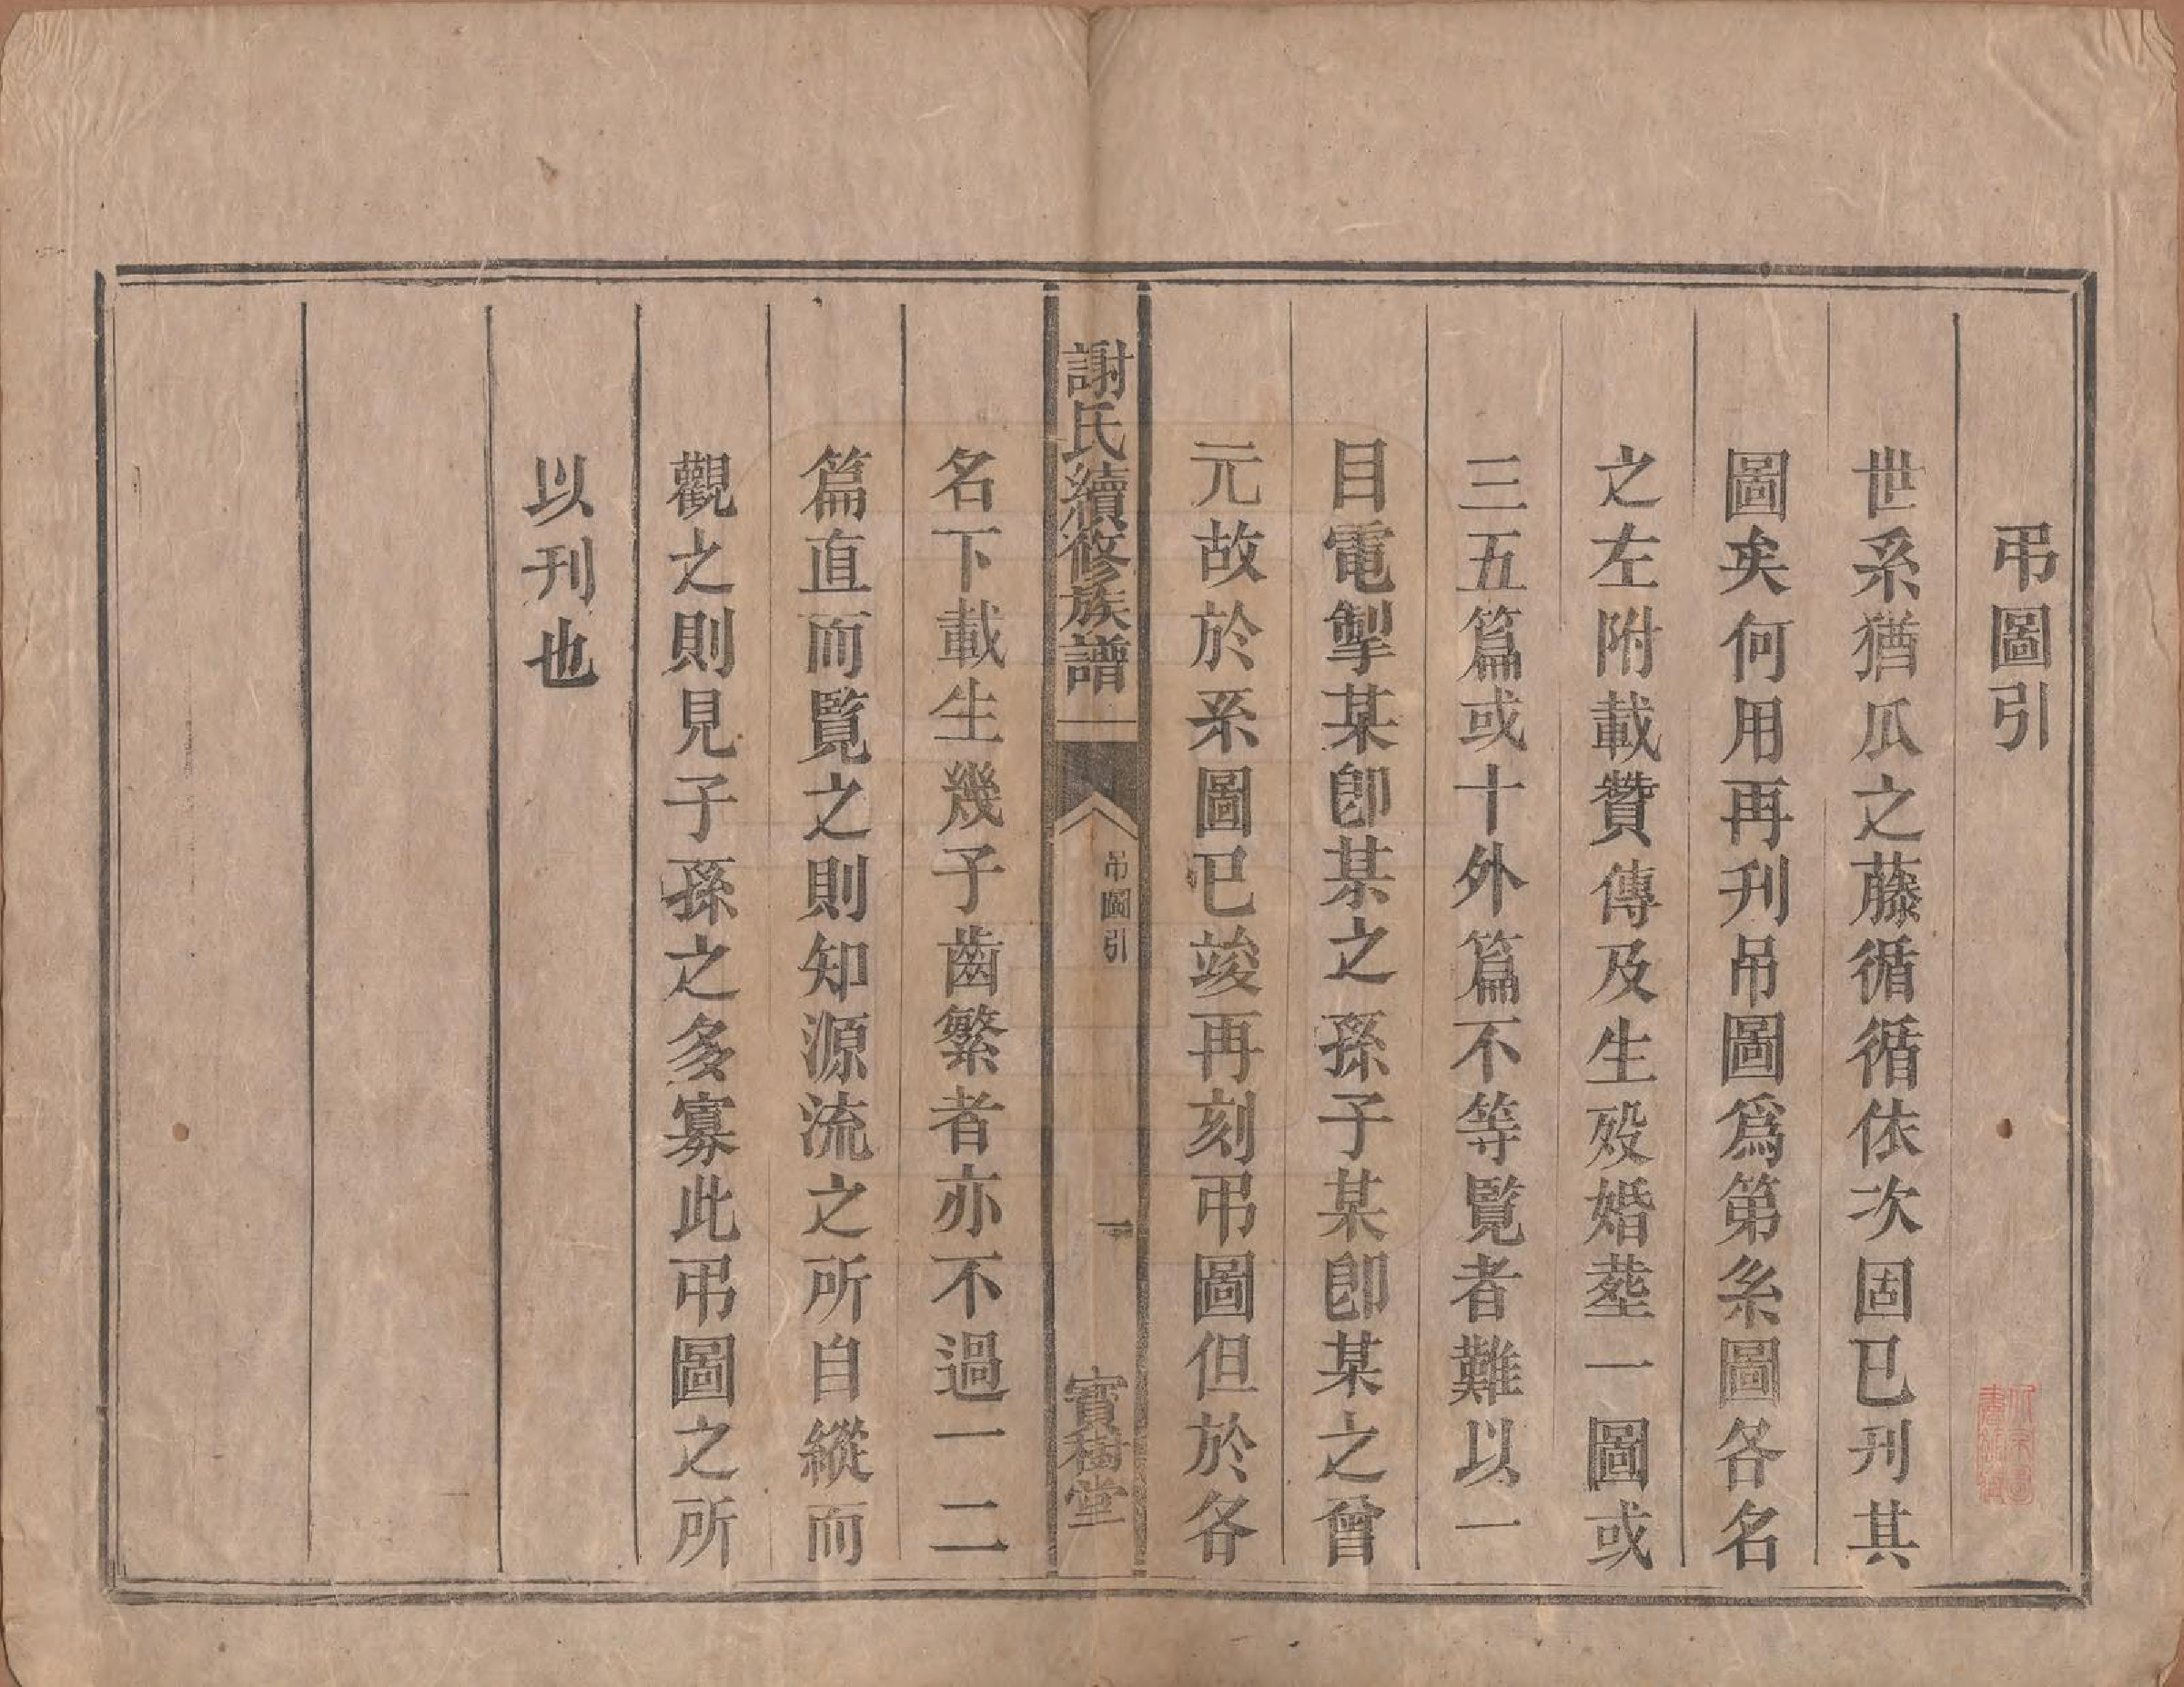 弔圖引
世系猶瓜之藤循循依次固已刋其
圖矣何用再刋吊圖爲第系圖各名
之左附載贊傳及生殁婚塟一圖或
三五篇或十外篇不等覽者難以一
目電掣某卽某之孫子某卽某之曾
元故於系圖已竣再刻弔圖但於各
謝氏續修族譜
吊圖引
一
寶樹堂
名下載生幾子齒繁者亦不過一二
篇直而覽之則知源流之所自縱而
觀之則見子孫之多寡此弔圖之所
以刊也